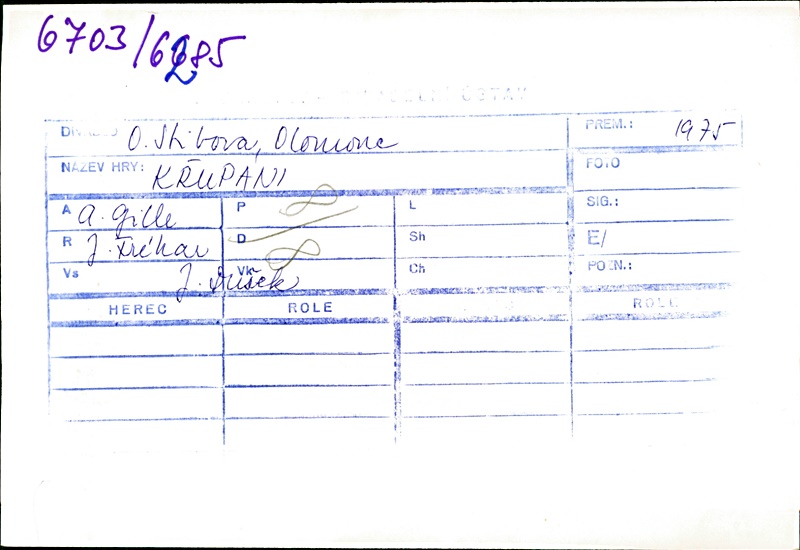 6703/6285
DIVADLO O. Stibora, Olomouc PREM.: 1975
NÁZEV HRY: KŘUPANI FOTO
A A. Gille P 8 L SIG.:
R J. Fréhar D Sh E/
Vs J. Dušek Vk 8 Ch POZN.:
HEREC ROLE ROLE